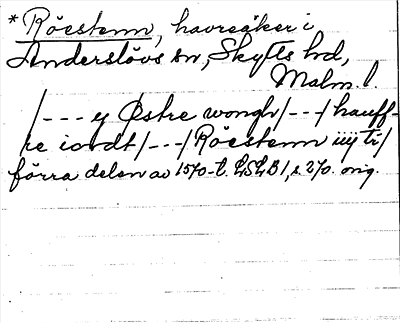 * Röestenn, havreåker i
Anderslövs sn, Skytts hd,
Malm. l.
/---y Östre wongh/---/hauff-
re iordt/---/Röestenn iiij tr/
förra delen av 1570-t. LSLB 1, s. 270. orig.